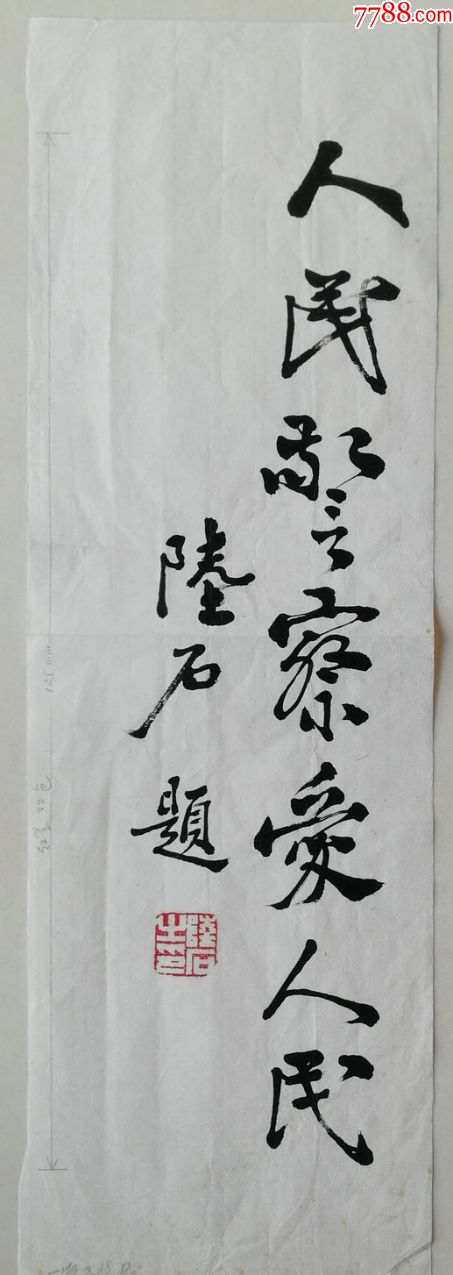 7788.com
人民警察愛人民
陸石題
陸石之印